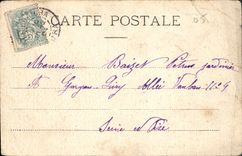 CARTE POSTALE
05
Monsieur Baizet Pétrus jardinier
A Gargan-Livry Allée Vauban N° 9
Seine et Oise